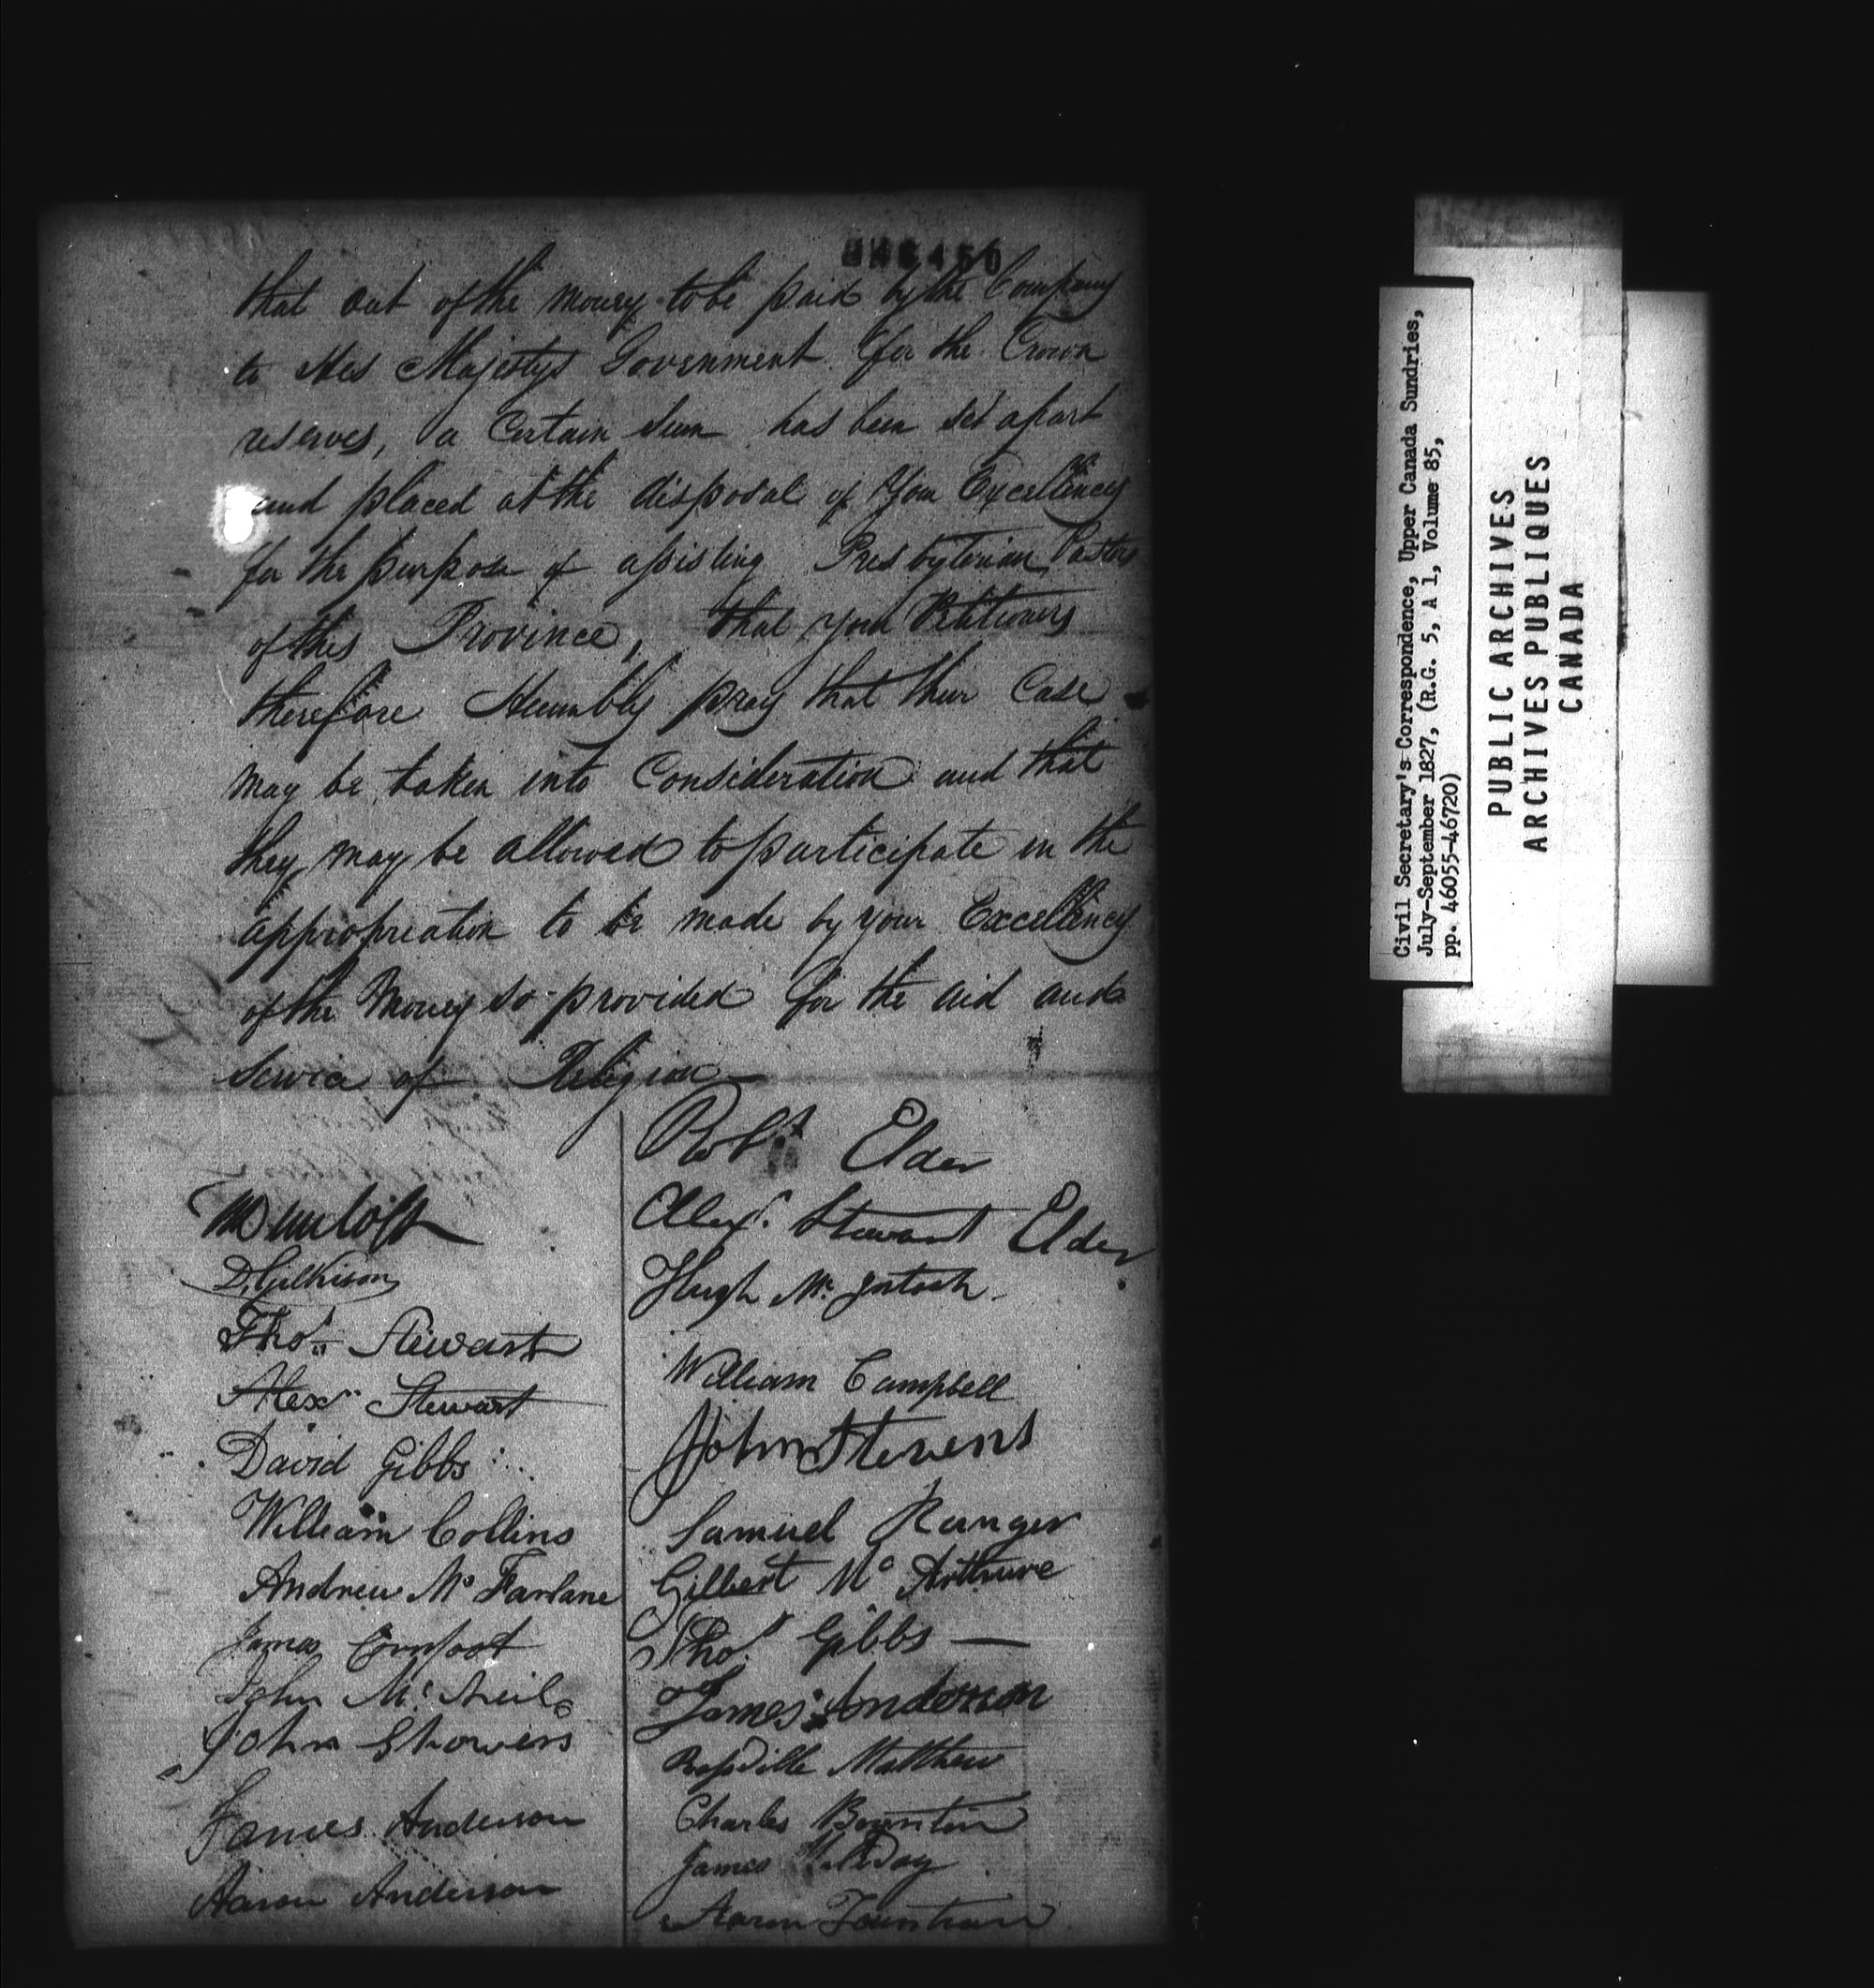 46450
that out of the money to be paid by the Company
to His Majestys Government for the Crown
reserves, a Certain Sum has been set apart
and placed at the disposal of Your Excellency
for the purpose of assisting Presbyterian Pastors
of this Province, that your Petitioners
therefore Humbly pray that their Case
may be taken into Consideration and that
they may be allowed to participate in the
appropriation to be made by your Excellency
of the Money so provided for the aid and
Service of Religion
D. Gilkison
Thos. Stewart
Alexr Stewart
David Gibbs
William Collins
Andrew Mc Farlane
James Comfort
John Mc Neil
John Showers
James Anderson
Aaron Anderson
Robt Elder
Alexr. Stewart Elder
Hugh Mc Intosh
William Campbell
John Stevens
Samuel Ranger
Gilbert Mc Arthure
Thos. Gibbs
James Anderson
Matthew
Charles
James
Aaron
Civil Secretary's Correspondence, Upper Canada Sundries,
July-September 1827, (R.G. 5, A 1, Volume 85,
pp. 46055-46720)
PUBLIC ARCHIVES
ARCHIVES PUBLIQUES
CANADA